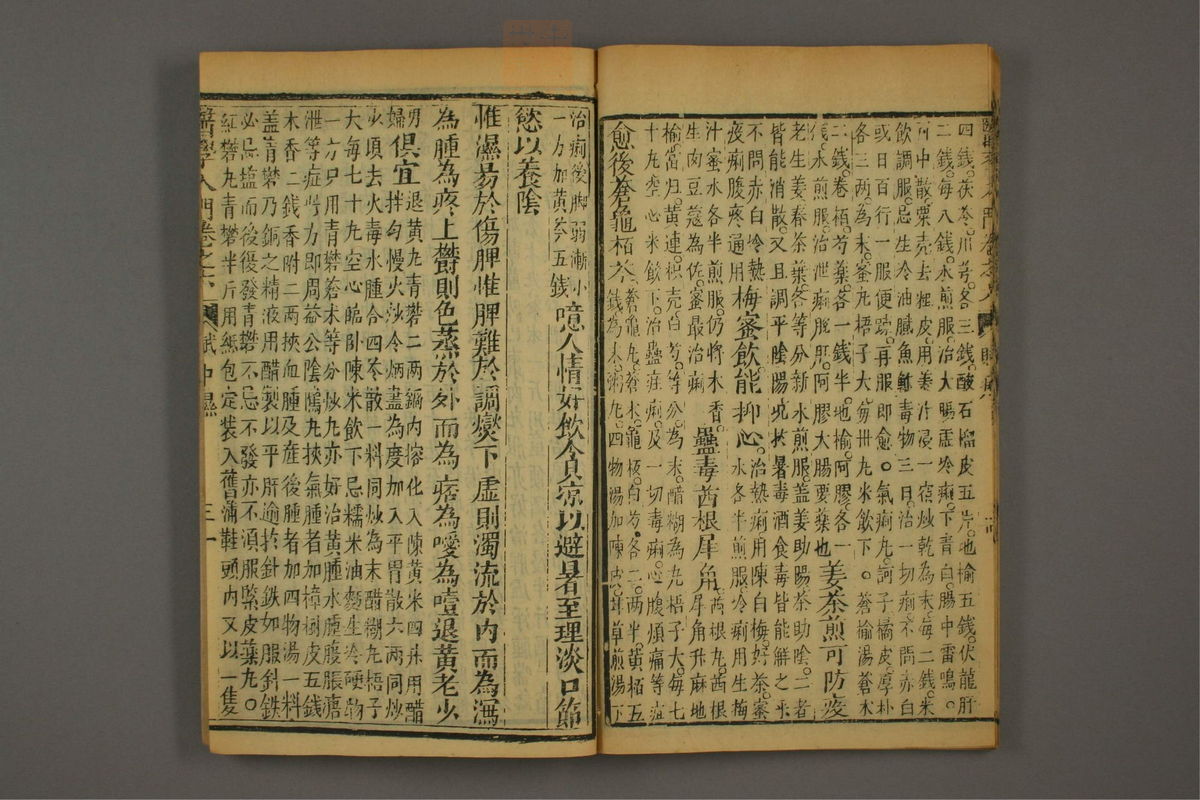 四錢茯苓川芎各三錢酸石榴皮五片地榆五錢伏龍肝
二錢每八錢水煎服治大腸虛冷痢下青白腸中雷鳴
中散粟壳去粗皮用姜汁浸一宿炒乾為末每二錢米
飲調服忌生冷油膩魚鮓毒物三日治一切痢不問赤白
或日百行一服便踈再服即愈氣痢丸訶子橘皮厚朴
各三兩為末蜜丸梧子大每卅丸米飲下蒼榆湯蒼木
二錢卷栢芍藥各一錢半地榆阿膠各一
水煎服治泄痢脫肛阿膠大腸要藥也姜茶煎可防疫
老生姜春茶葉各等分新水煎服盖姜助陽茶助陰二者
皆能消散又且調平陰陽况於暑毒酒食毒皆能解之乎
不問赤白冷熱梅蜜飲能抑心治熱痢用陳白梅好茶蜜
夜痢腹疼通用水各半煎服冷痢用生梅
汁蜜水各半煎服仍將木香
生肉豆蔻為佐蜜最治痢蠱毒茜根犀角茜根丸茜根
犀角升麻地
榆當归黃連枳壳白芍等分為末醋糊為丸梧子大每七
十丸空心米飲下治蠱疰痢及一切毒痢心腹煩痛等症
愈後蒼龜栢
蒼龜丸蒼术龜板白芍各二兩半黃栢五
錢為末粥丸四物湯加陳皮甘草煎湯下
治痢後脚弱漸小
一方加黃芩五錢噫人情好飲食凉以避暑至理淡口節
慾以養陰
惟濕易於傷脾惟脾難於調燮下虛則濁流於內而為瀉
為腫為疼上欝則色蒸於外而為痞為噯為噎退黃老少
男婦俱宜退黃丸青礬二兩鍋內熔化入陳黃米四升用醋
拌勻慢火炒令烟盡為度加入平胃散六兩同炒
少頃去火毒水腫合四苓散一料同炒為末醋糊丸梧子
大每七十丸空心臨卧陳米飲下忌糯米油麵生冷硬物
一方只用青礬蒼术等分炒丸亦好治黃腫水腫腹脹溏
泄等症此方即周益公陰隲丸挾氣腫者加樟樹皮五錢
木香二錢香附二兩挾血腫及產後腫者加四物湯一料
盖青礬乃銅之精液用醋製以平肝逾於針鉄如服針鉄
必忌塩而後復發青礬不忌不發亦不須服緊皮藥丸
紅礬丸青礬半斤用紙包定裝入舊蒲鞋頭內又以一隻
醫學入門卷之六 賦中濕 三一